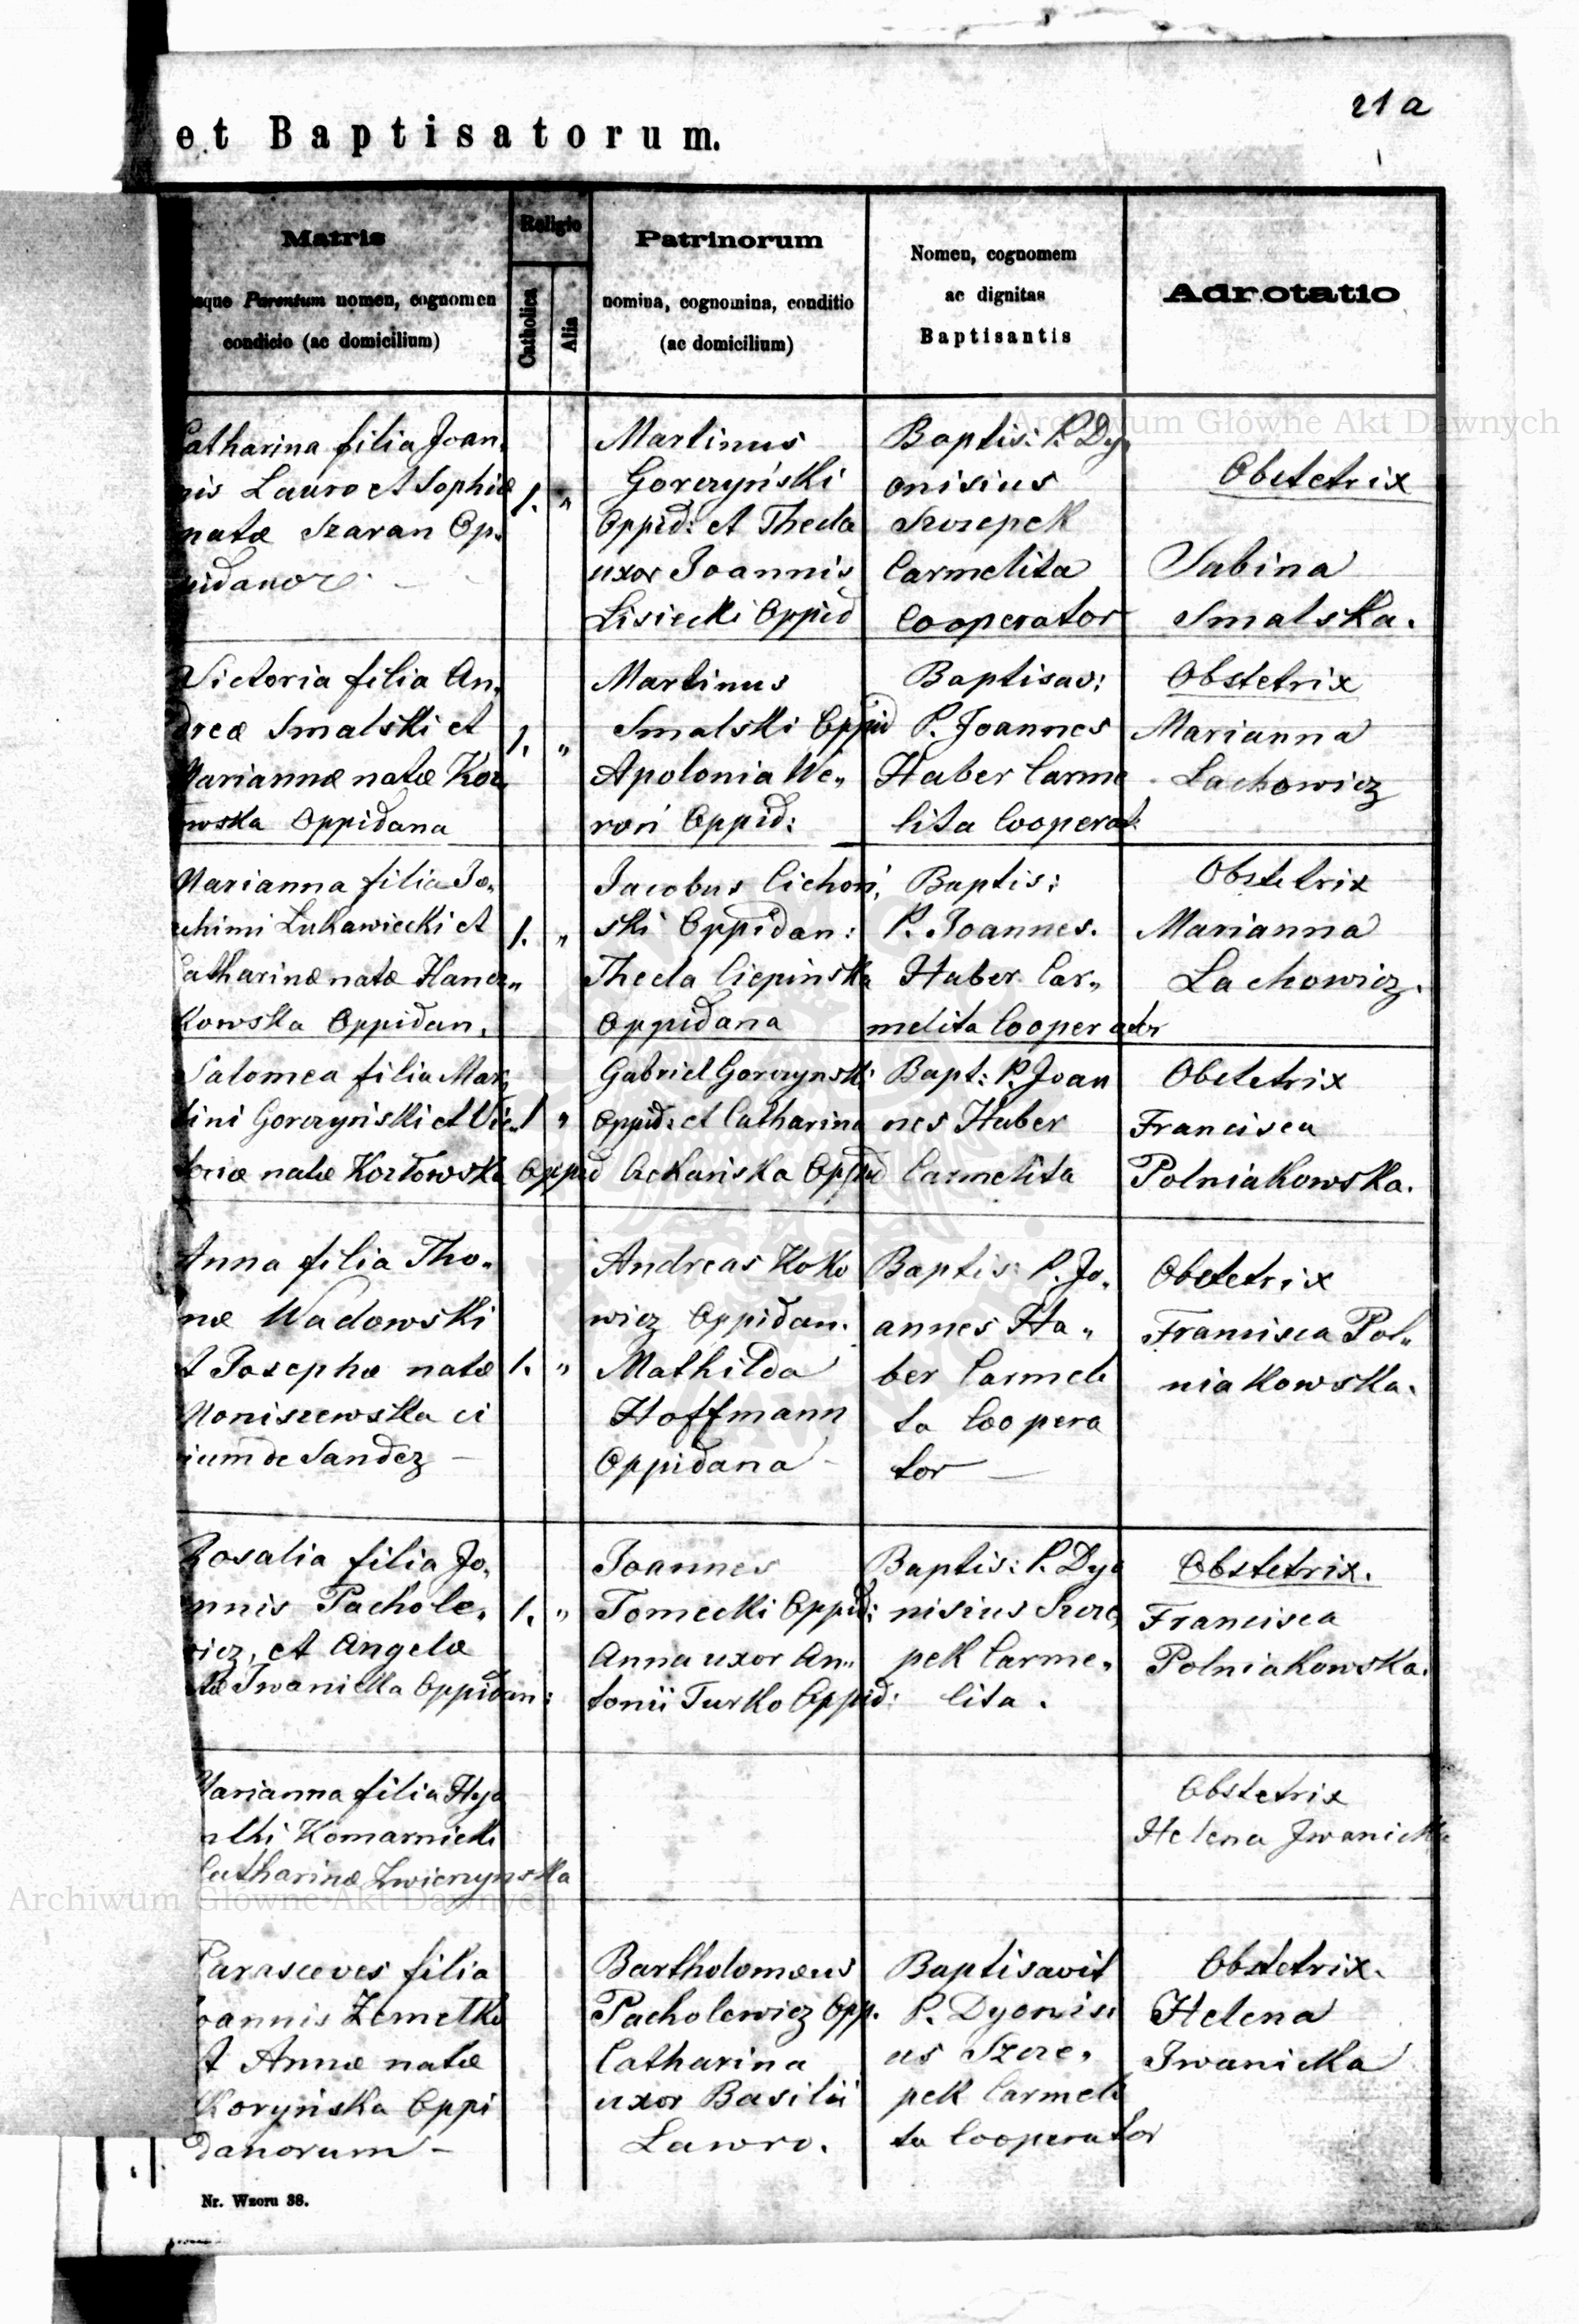 21 a
et Baptisatorum.
Matris
sque Parentum nomen, cognomen
condicio (ac domicilium)
Religio
Catholica
Alia
Patrinorum
nomina, cognomina, conditio
(ac domicilium)
Nomen, cognomem
ac dignitas
Baptisantis
Adrotatio
Archiwum Główne Akt Dawnych
Catharina filia Joan„
nis Lauro et Sophiæ
natæ Szaran Op„
pidanor
1. „
Martinus
Gorczyński
Oppid: et Thecla
uxor Joannis
Lisiecki Oppid
Baptis: P. Dy„
onisius
Szczepek
Carmelita
Cooperator
Obstetrix
Sabina
Smalska.
Victoria filia An„
dreæ Smalski et
Mariannæ natæ Koz„
owska Oppidana
1. „
Martinus
Smalski Oppid
Apolonia We„
roń Oppid:
Baptisav:
P. Joannes
Haber Carme
lita Cooperat:
Obstetrix
Marianna
Lachowicz
Marianna filia Jo„
achimi Lukawiecki et
Catharinæ natæ Hancz„
kowska Oppidan.
1. „
Jacobus Cichoń„
ski Oppidan:
Thecla Ciepinska
Oppidana
Baptis:
P. Joannes.
Haber Car„
melita Cooperator
Obstetrix
Marianna
Lachowicz.
Salomea filia Mar„
tini Gorczyński et Vic„
toriæ natæ Kozłowska Oppid
1 „
Gabriel Gorczynski
Oppid: et Catharina
Oppid
Bapt: P. Joan
nes Haber
Carmelita
Obstetrix
Francisca
Polniakowska.
Anna filia Tho„
mæ Wadowski
et Josephæ natæ
Moniszewska ci
vium de Sandez —
1. „
Andreas Koko
wicz Oppidan.
Mathilda
Hoffmann
Oppidana
Baptis: P. Jo„
annes Ha„
ber Carmeli
ta Coopera
tor —
Obstetrix
Francisca Pol„
niakowska.
Rosalia filia Jo„
annis Pachole„
wicz, et Angelæ
tæ Iwanicka Oppidan:
1. „
Joannes
Tomecki Oppid:
Anna uxor An„
tonii Turko Oppid:
Baptis: P. Dyo
nisius Szcze„
pek Carme„
lita.
Obstetrix.
Francisca
Polniakowska.
Marianna filia Hya
nthi Komarnicki
Catharinæ Zwierzynska
Obstetrix
Helena Iwanicka
Archiwum Główne Akt Dawnych
Parasceves filia
Joannis Zemetko
et Annæ natæ
Koryńska Oppi
danorum —
Bartholomæus
Pacholewicz Opp.
Catharina
uxor Basilii
Lawro.
Baptisavit
P. Dyonisi
us Szcze„
pek Carmeli
ta Cooperator
Obstetrix.
Helena
Iwanicka
Nr. Wzoru 38.